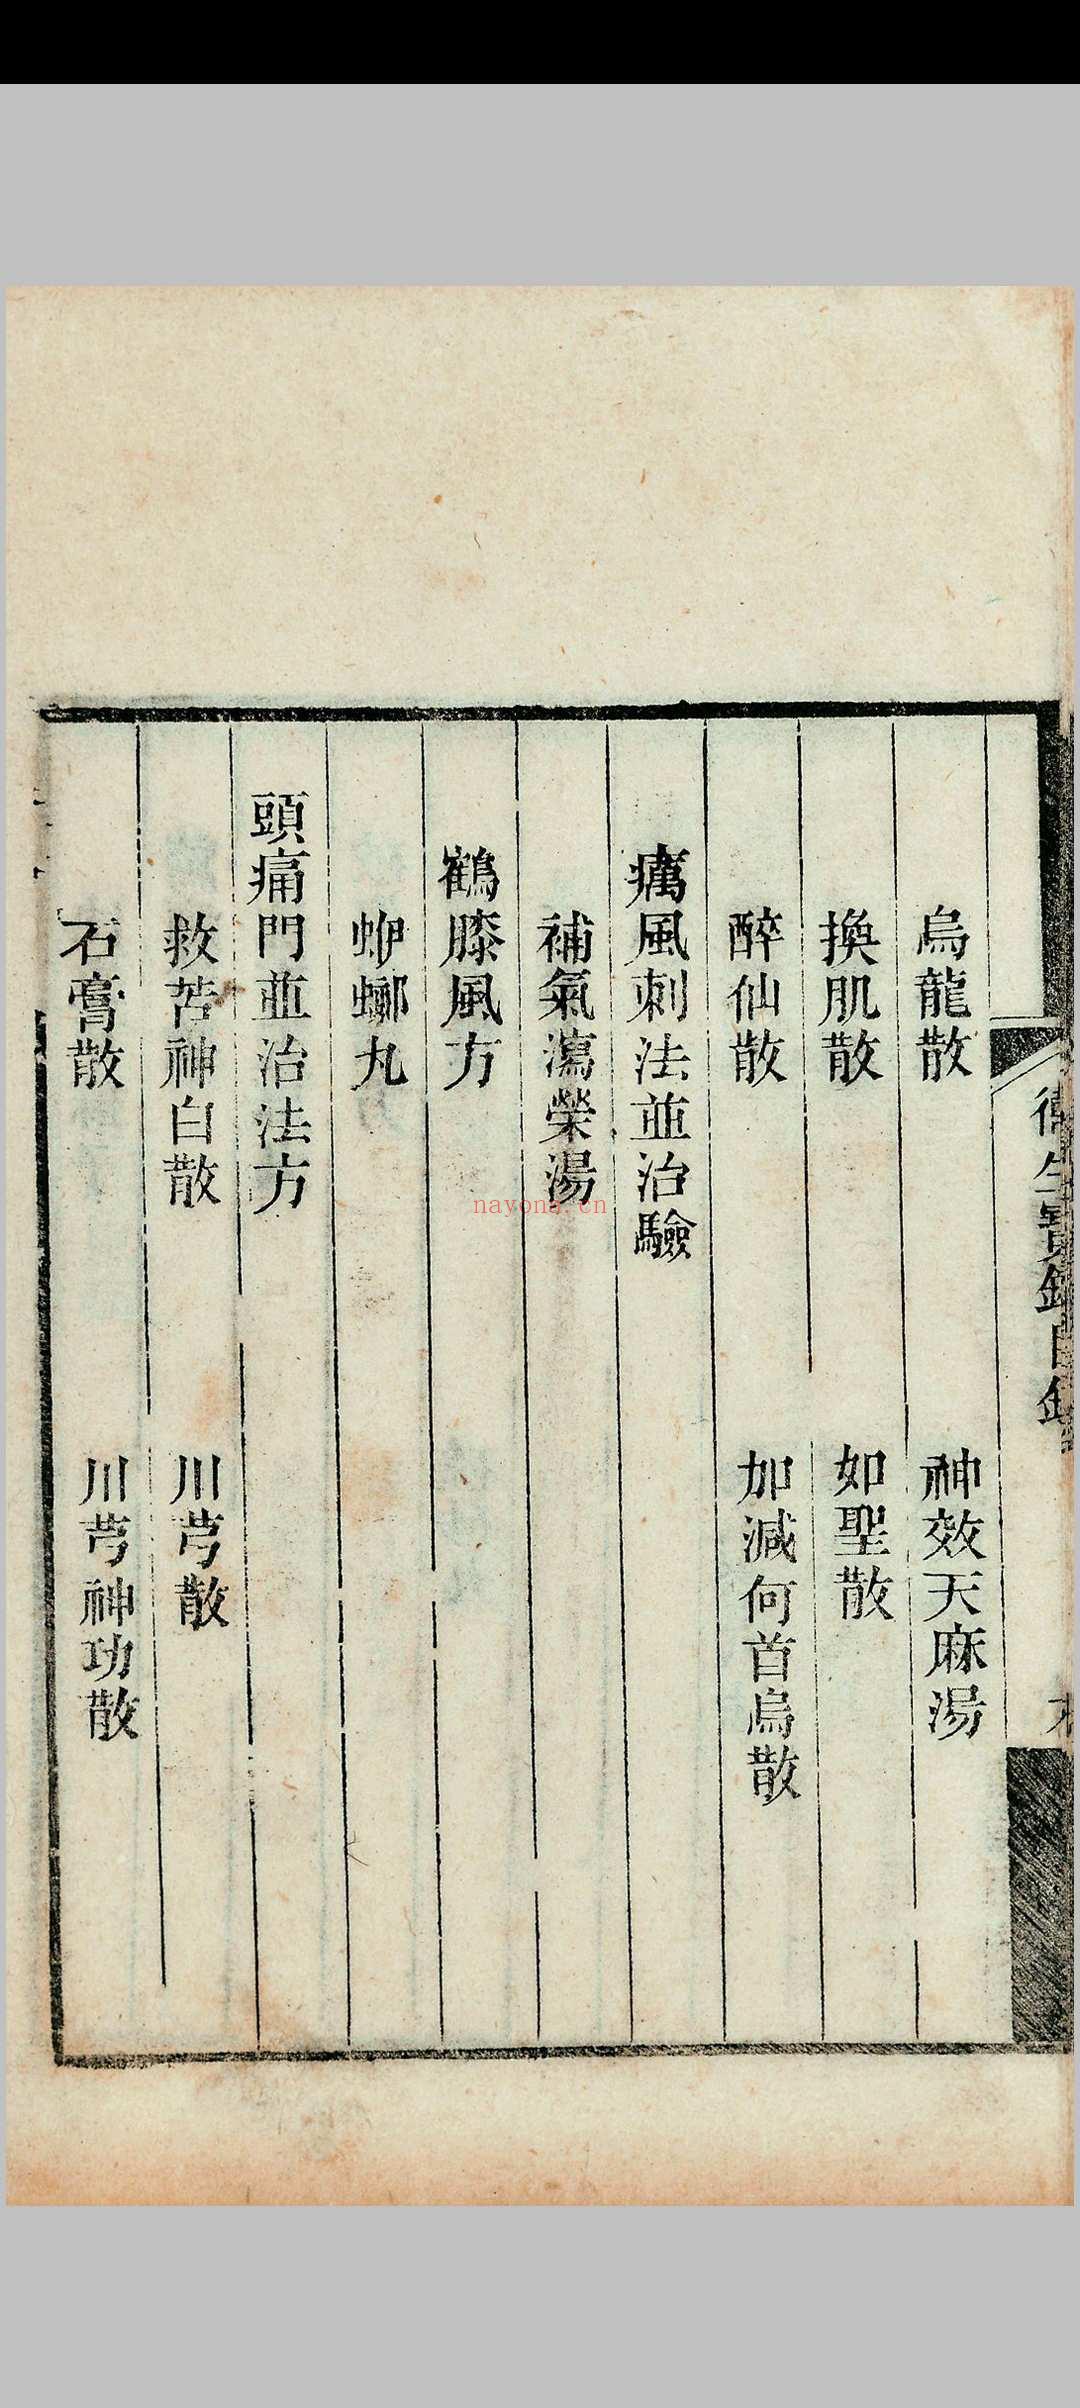 衛生寶鑑目錄
烏龍散 神效天麻湯
換肌散 如聖散
醉仙散 加減何首烏散
癘風刺法並治驗
補氣瀉榮湯
鶴膝風方
蛜𧌴丸
頭痛門並治法方
救苦神白散 川芎散
石膏散 川芎神功散
nayona.cn